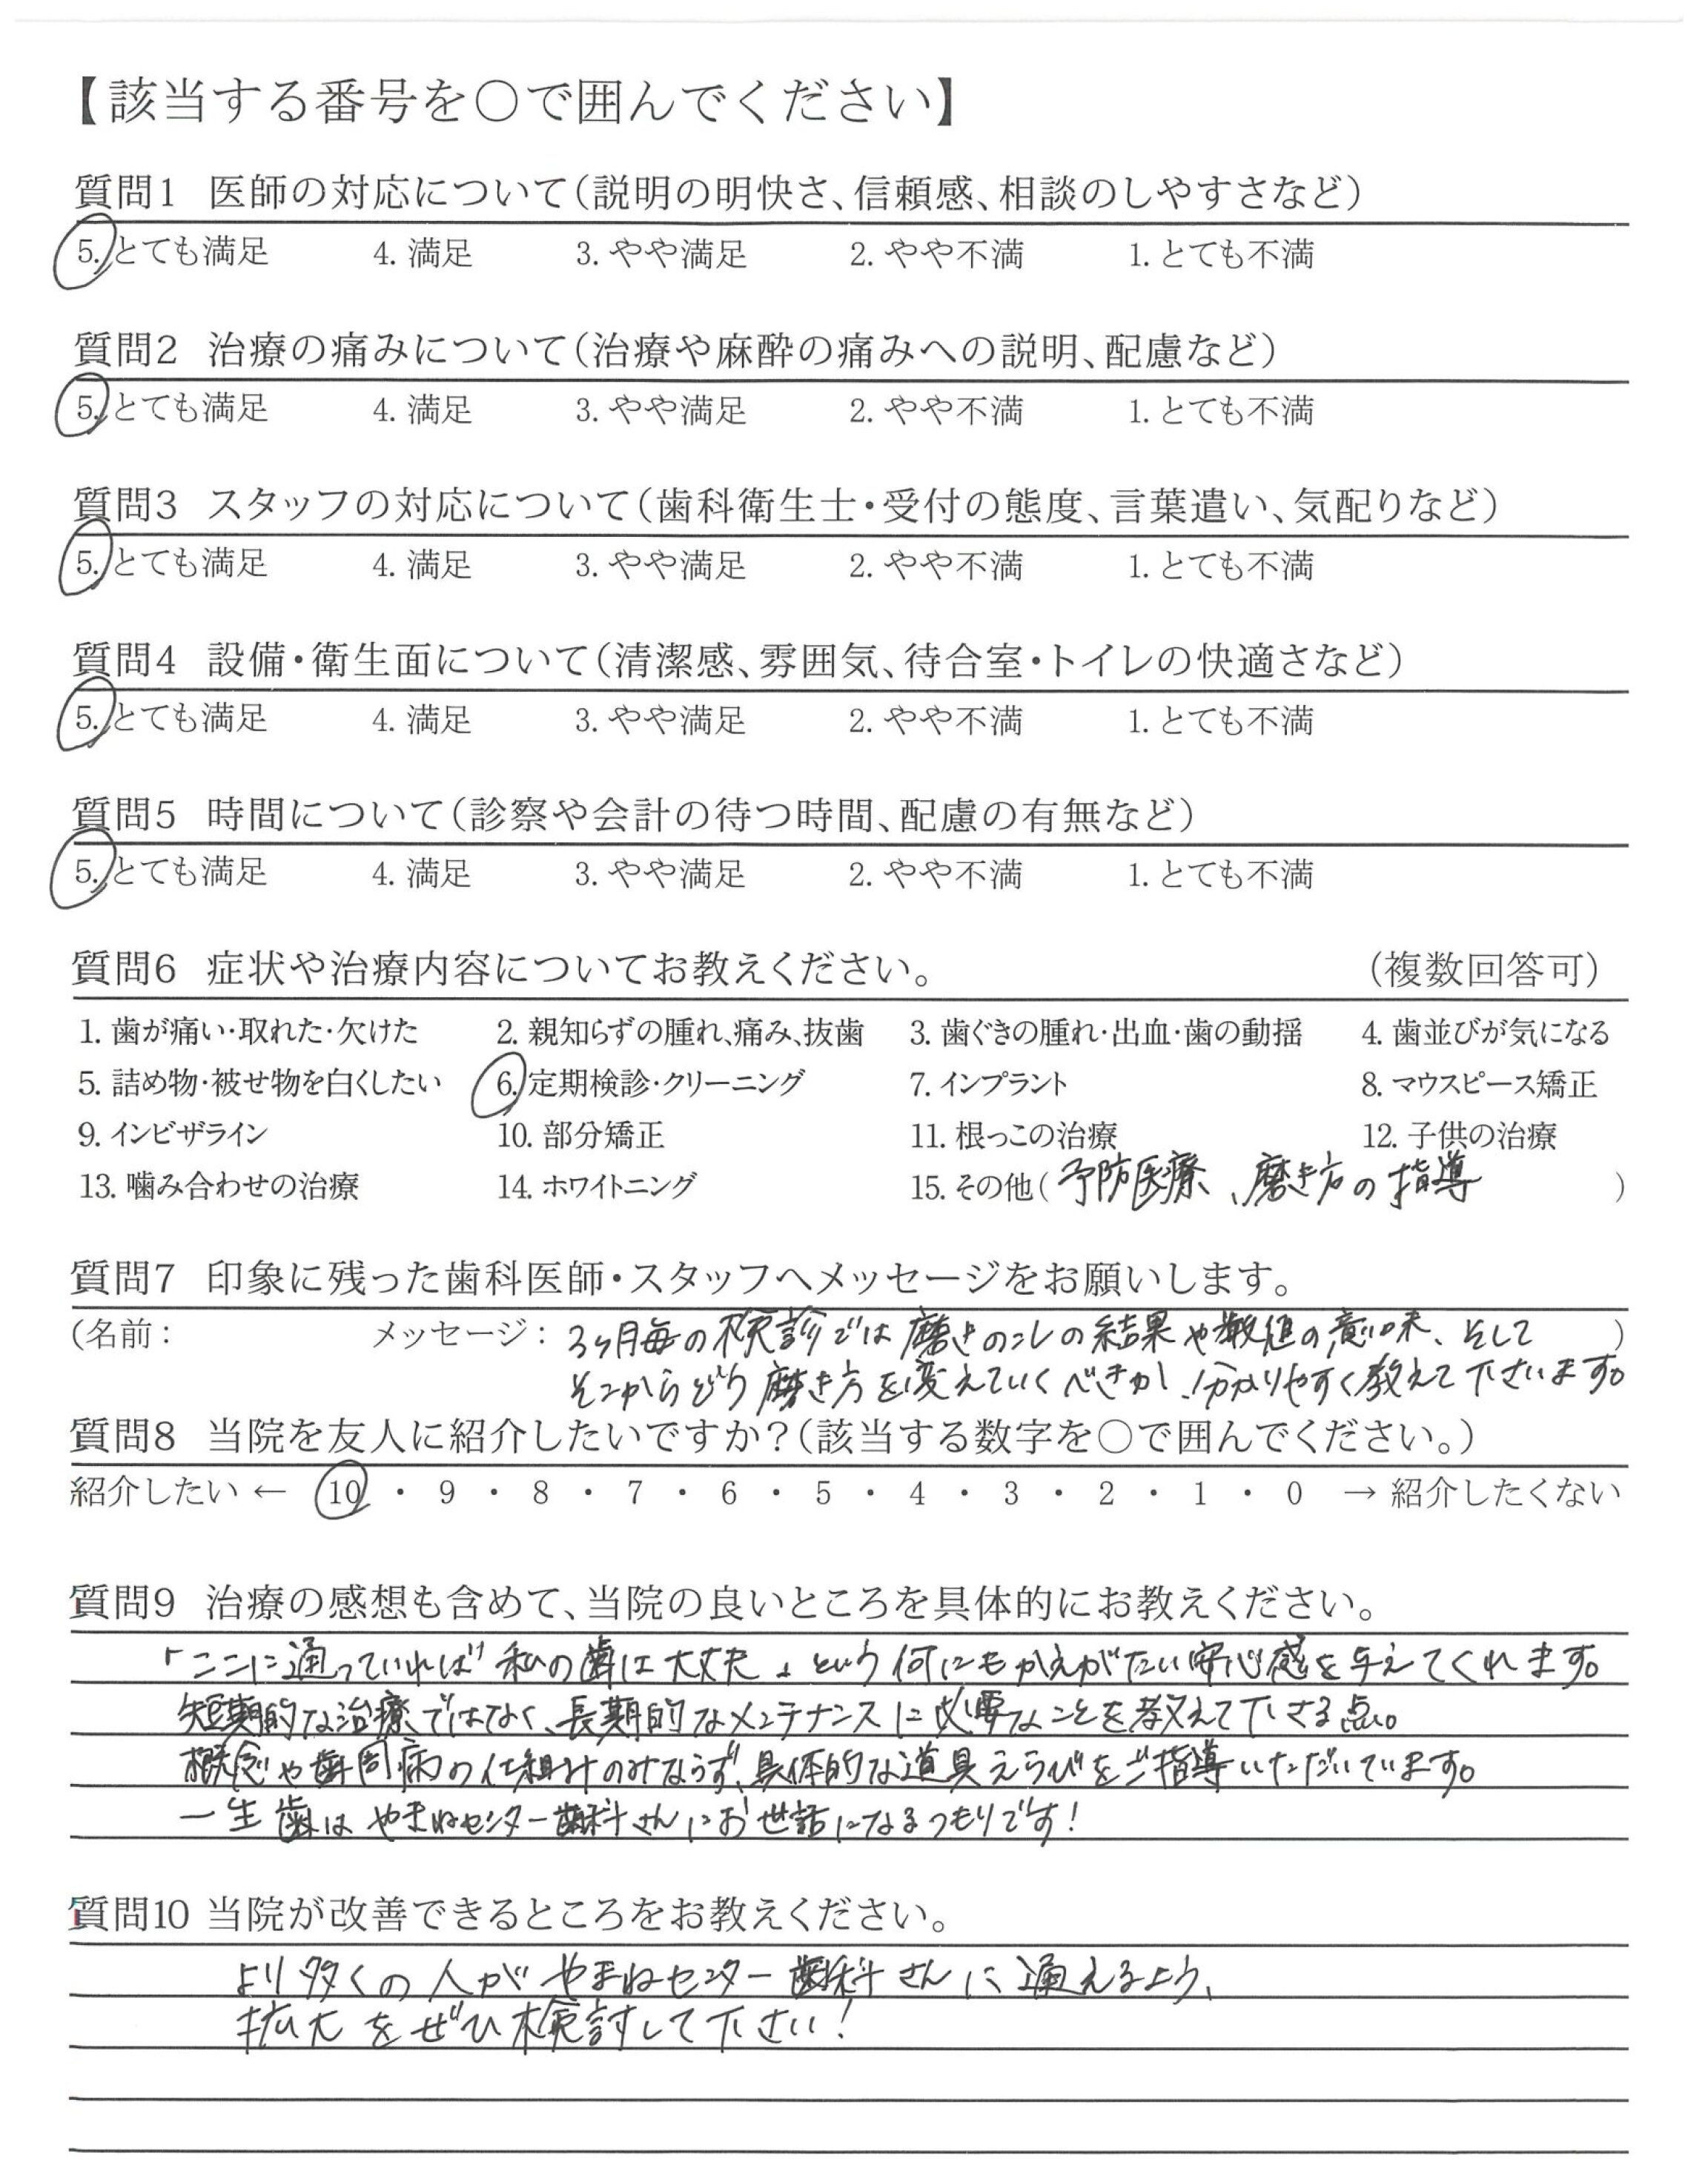 【該当する番号を○で囲んでください】
質問1 医師の対応について(説明の明快さ、信頼感、相談のしやすさなど)
5. とても満足 4. 満足 3. やや満足 2. やや不満 1. とても不満
質問2 治療の痛みについて(治療や麻酔の痛みへの説明、配慮など)
5. とても満足 4. 満足 3. やや満足 2. やや不満 1. とても不満
質問3 スタッフの対応について(歯科衛生士・受付の態度、言葉遣い、気配りなど)
5. とても満足 4. 満足 3. やや満足 2. やや不満 1. とても不満
質問4 設備・衛生面について(清潔感、雰囲気、待合室・トイレの快適さなど)
5. とても満足 4. 満足 3. やや満足 2. やや不満 1. とても不満
質問5 時間について(診察や会計の待つ時間、配慮の有無など)
5. とても満足 4. 満足 3. やや満足 2. やや不満 1. とても不満
質問6 症状や治療内容についてお教えください。 (複数回答可)
1. 歯が痛い・取れた・欠けた 2. 親知らずの腫れ、痛み、抜歯 3. 歯ぐきの腫れ・出血・歯の動揺 4. 歯並びが気になる
5. 詰め物・被せ物を白くしたい 6. 定期検診・クリーニング 7. インプラント 8. マウスピース矯正
9. インビザライン 10. 部分矯正 11. 根っこの治療 12. 子供の治療
13. 噛み合わせの治療 14. ホワイトニング 15. その他( 予防医療、磨き方の指導 )
質問7 印象に残った歯科医師・スタッフへメッセージをお願いします。
(名前: メッセージ: 3ヶ月毎の検診では磨きのコシの結果や数値の意味、そして )
そこからどう磨き方を変えていくべきか、分かりやすく教えて下さいます。
質問8 当院を友人に紹介したいですか?(該当する数字を○で囲んでください。)
紹介したい ← 10 ・ 9 ・ 8 ・ 7 ・ 6 ・ 5 ・ 4 ・ 3 ・ 2 ・ 1 ・ 0 → 紹介したくない
質問9 治療の感想も含めて、当院の良いところを具体的にお教えください。
「ここに通っていれば私の歯は大丈夫」という何にもかえがたい安心感を与えてくれます。
短期的な治療ではなく、長期的なメンテナンスに必要なことを教えて下さる点。
概念や歯周病の仕組みのみならず、具体的な道具えらびをご指導いただいています。
一生歯はやまねセンター歯科さんにお世話になるつもりです!
質問10 当院が改善できるところをお教えください。
より多くの人がやまねセンター歯科さんに通えるよう、
拡大をぜひ検討して下さい!